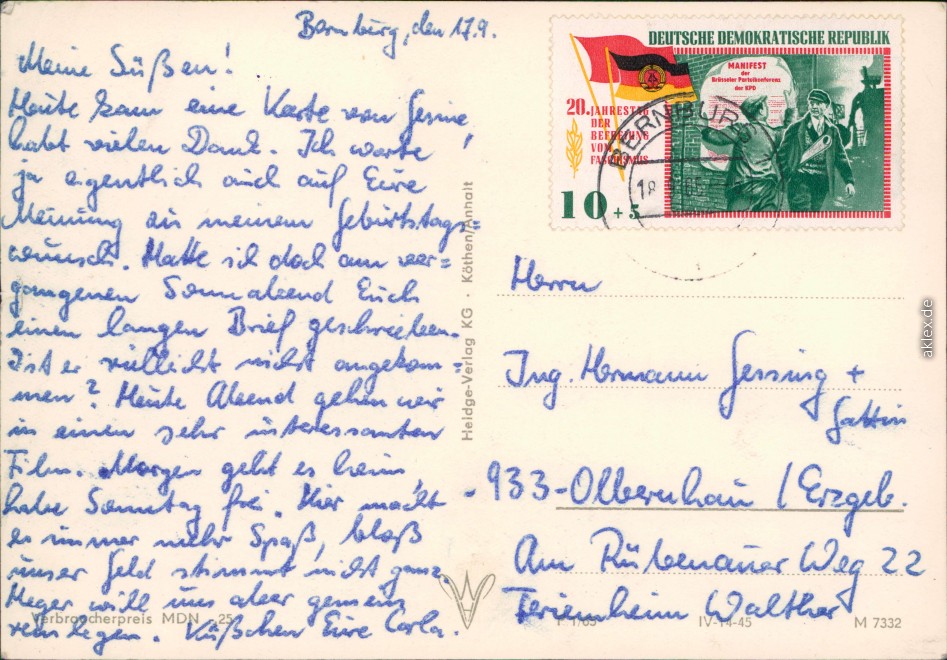 Bernburg, den 17.9.
Meine Süßen!
Heute kam eine Karte von Gesine,
habt vielen Dank. Ich warte
ja eigentlich auch auf Eure
Meinung zu meinem Geburtstags=
wunsch. Hatte ich doch am ver=
gangenen Sonnabend Euch
einen langen Brief geschrieben.
Ist er vielleicht nicht angekom=
men? Heute Abend gehen wir
in einen sehr interessanten
Film. Morgen geht es heim,
habe Sonntag frei. Hier macht
es immer mehr Spaß, bloß
unser Geld stimmt nicht ganz.
will uns aber gemein
reinlegen. Küßchen Eure Carla.
Verbraucherpreis MDN -,25
Heidge-Verlag KG · Köthen/Anhalt
DEUTSCHE DEMOKRATISCHE REPUBLIK
MANIFEST
der
Brüsseler Parteikonferenz
der KPD
20. JAHRESTAG
DER
BEFREIUNG
VOM
FASCHISMUS
10 + 5
BERNBURG
Herrn
Ing. Hermann Gessing +
Gattin
933-Olbernhau / Erzgeb.
Am Rübenauer Weg 22
Ferienheim Walther
IV-14-45
M 7332
aklex.de